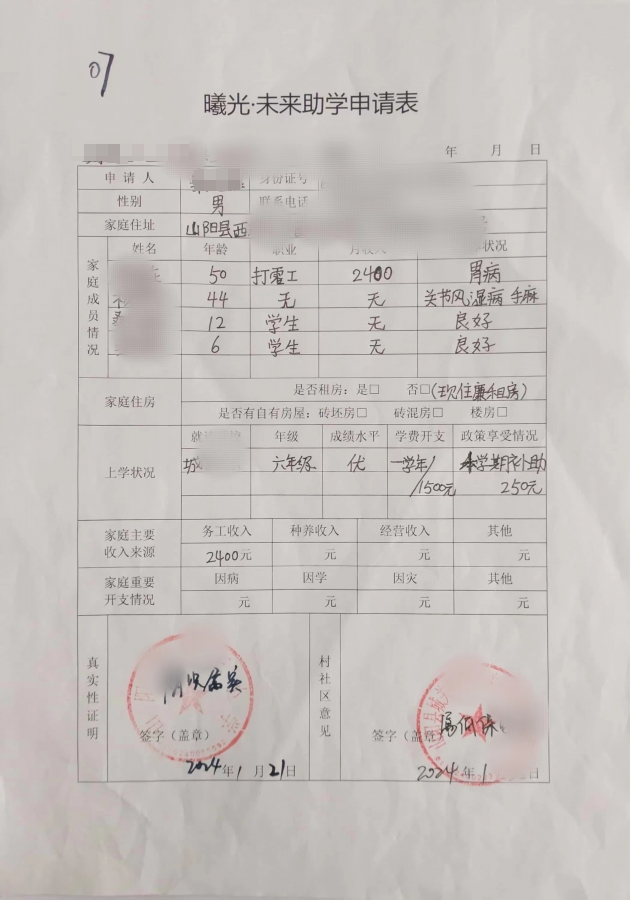 07
曦光·未来助学申请表
年 月 日
申请人 身份证号
性别 男 联系电话
家庭住址 山阳县西
家庭成员情况
姓名 年龄 职业 月收入 状况
50 打零工 2400 胃病
44 无 无 关节风湿病 手麻
12 学生 无 良好
6 学生 无 良好
家庭住房
是否租房：是□ 否□(现住廉租房)
是否有自有房屋：砖坯房□ 砖混房□ 楼房□
上学状况
年级 成绩水平 学费开支 政策享受情况
城 六年级 优 一学年/ 学期补助
/1500元 250元
家庭主要收入来源
务工收入 种养收入 经营收入 其他
2400元 元 元 元
家庭重要开支情况
因病 因学 因灾 其他
元 元 元 元
真实性证明
签字（盖章）
2024年1月21日
村社区意见
签字（盖章
2024年1 日